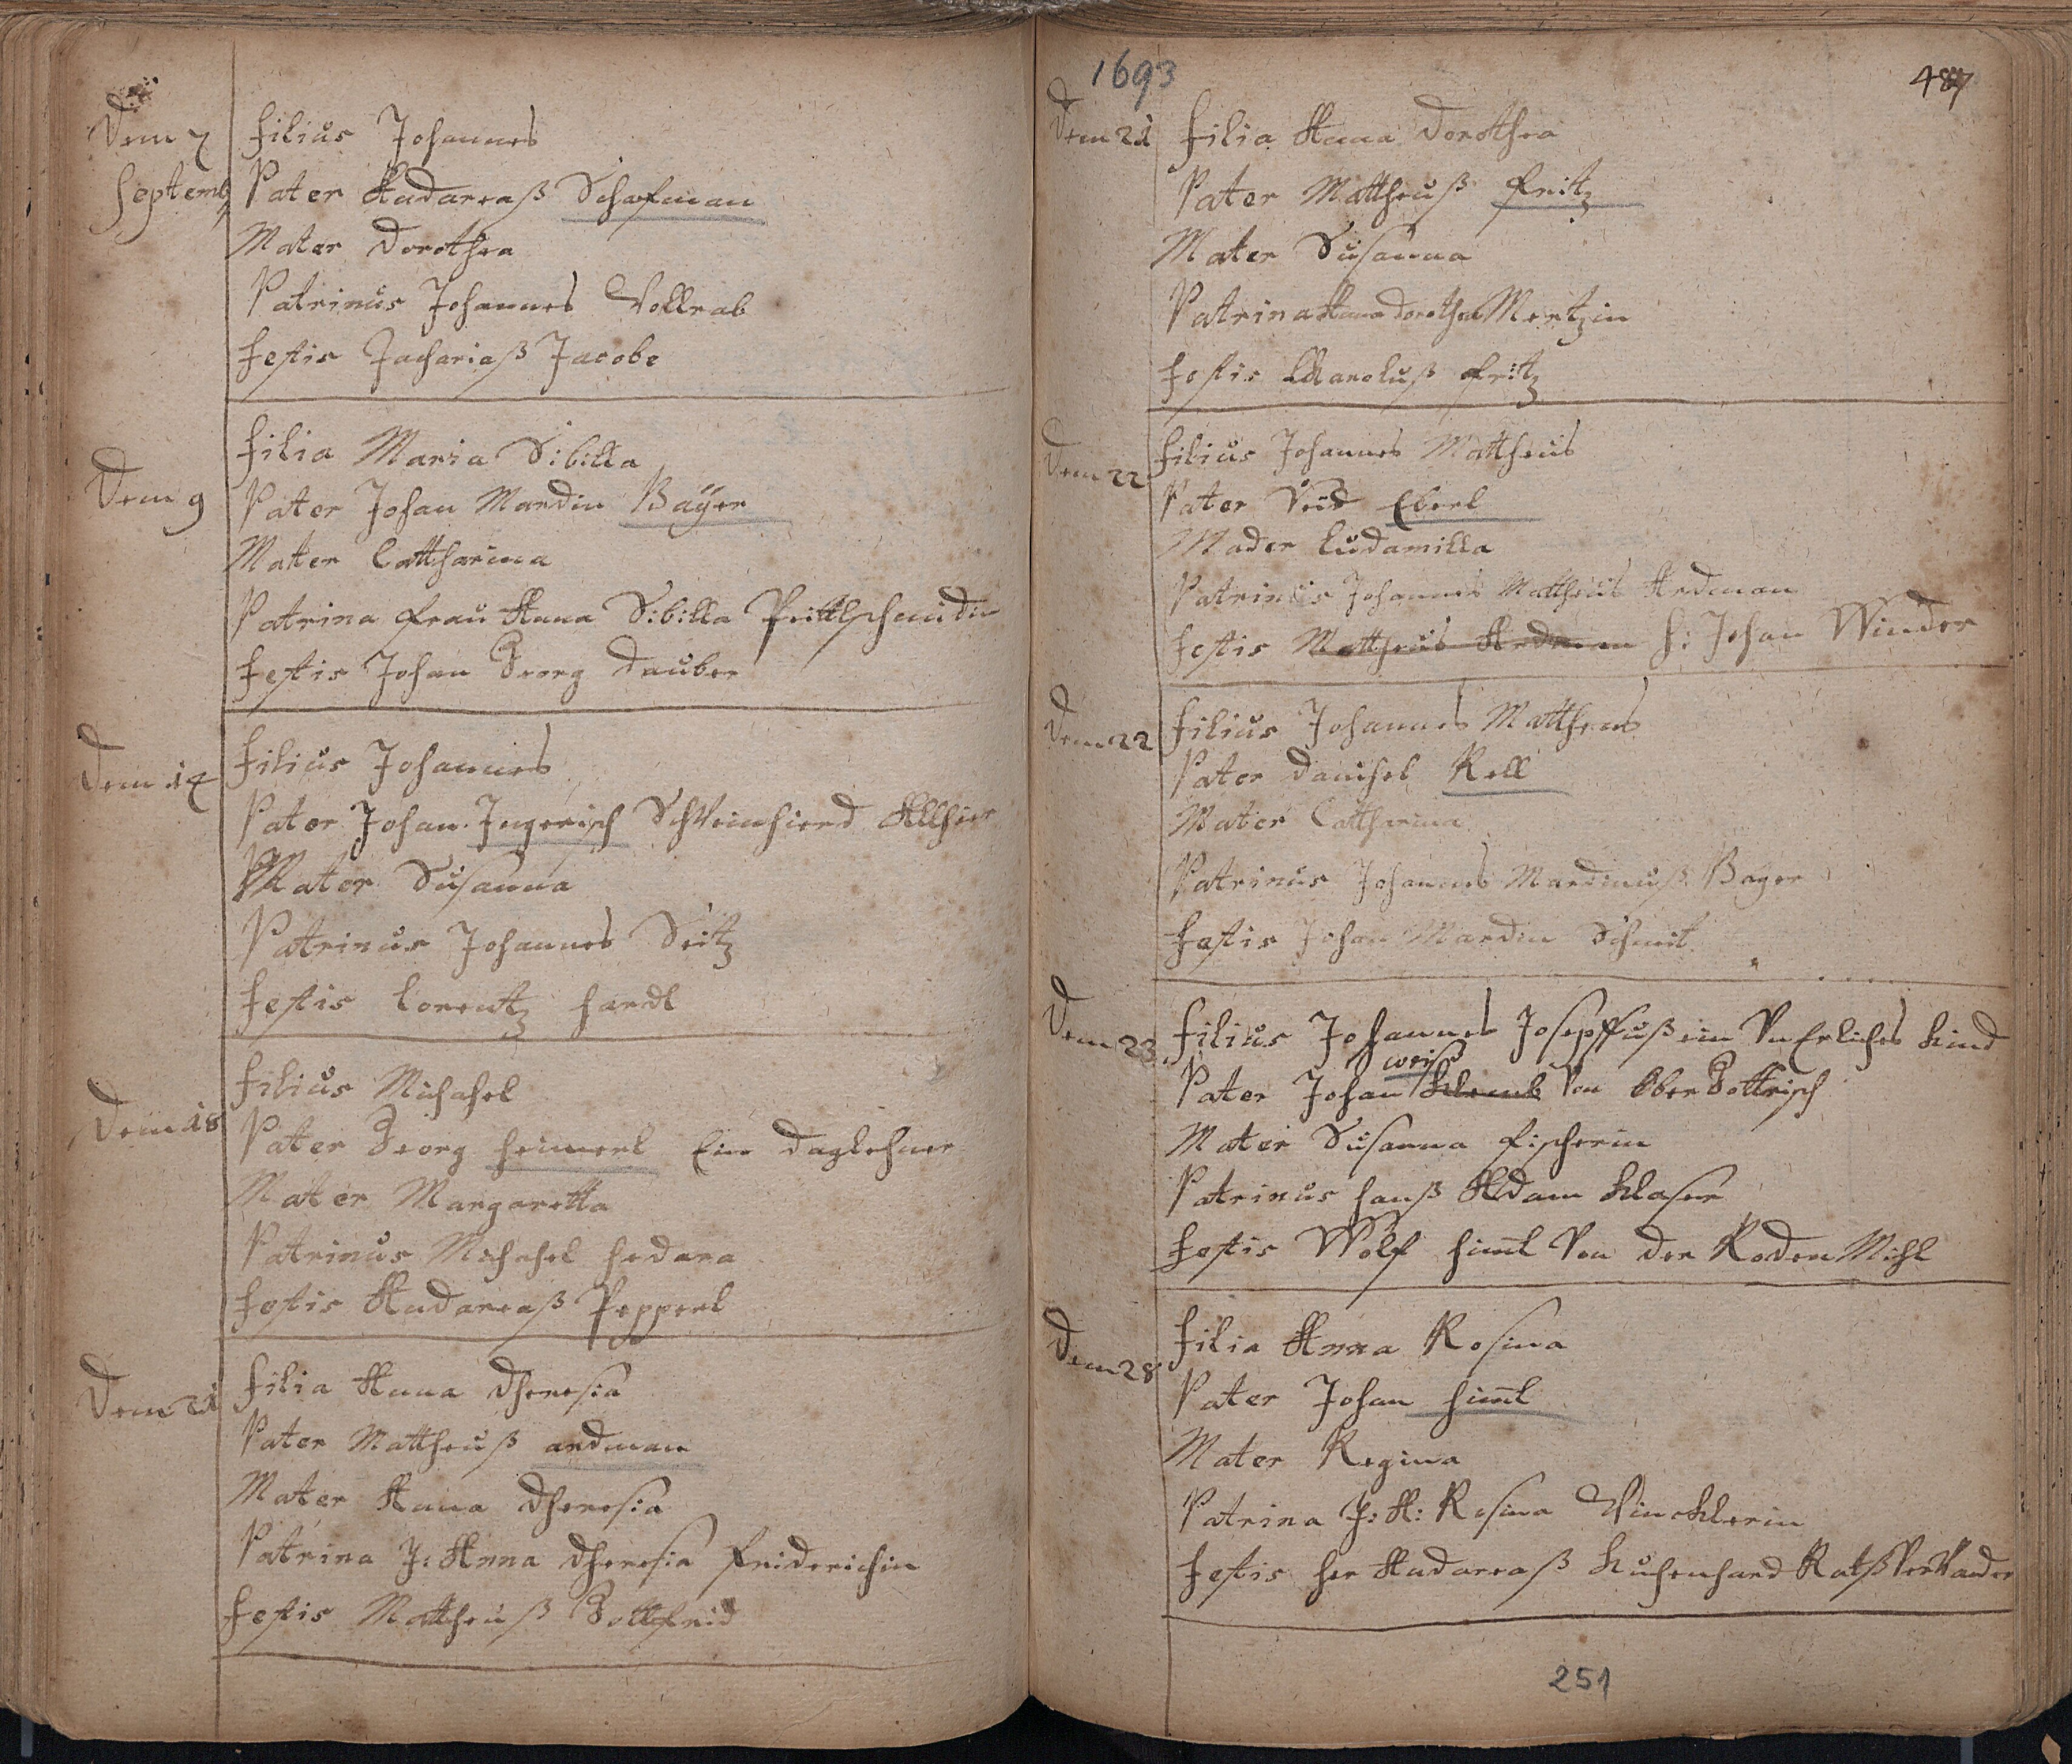 Dem 7
Septemb
Filius Johannes
Pater Andareaß Schafman
Mater Dorothea
Patrinus Johannes Vollrab
Testis Zachariaß Jacobe
Dem 9
Filia Maria Sibilla
Pater Johan Mardin Baÿer
Mater Cattharina
Patrina Frau Anna Sibilla
Testis Johan Georg Dauber
Dem 14
Filius Johannes
Pater Johan Ingerisch SchVeinhierd Allhier
Mater Susanna
Patrinus Johannes Seitz
Testis Lorentz Hardl
Dem 18
Filius Michahel
Pater Georg Heimerl Ein Daglehner
Mater Margaretta
Patrinus Michahel Hedara
Testis Andareaß Pepperl
Dem 21
Filia Anna Dheresia
Pater Mattheuß ardman
Mater Anna Dheresia
Patrina J: Anna Dheresia Friderichin
Testis Mattheuß Gottfrid
1693
487
Dem 21
Filia Anna Dorothea
Pater Mattheuß Fritz
Mater Susanna
Patrina Anna Dorothea Mertzin
Testis Karoluß Fritz
Dem 22
Filius Johannes Mattheus
Pater Veid Eberl
Mader Ludamilla
Patrinus Johannes Mattheus Ardman
Testis Mattheus Ardman H: Johan Winder
Dem 22
Filius Johannes Mattheus
Pater Danihel Rell
Mater Cattharina
Patrinus Johannes Mardinuß Bayer
Testis Johan Mardin Schmit
Dem 23
Filius Johannes Josepffuß ein VnErliches Kind
weiß
Pater Johan Von Ober Gottrisch
Mater Susanna Fischerin
Patrinus Hanß Adam Klaser
Testis Wolf Himl Von der Roden Mihl
Dem 28
Filia Anna Rosina
Pater Johan Himl
Mater Regina
Patrina J: A: Rosina Vincklerin
Testis Her Andareaß Kuhenhard RatßVerVander
251